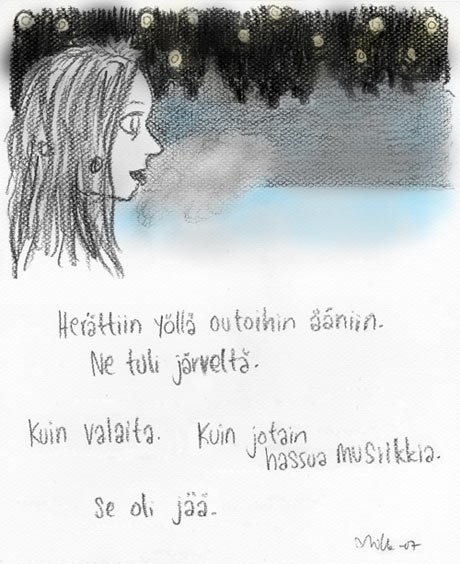 Herättiin yöllä outoihin ääniin.
Ne tuli järveltä.
Kuin valaita. Kuin jotain
hassua musiikkia.
Se oli jää.
-07